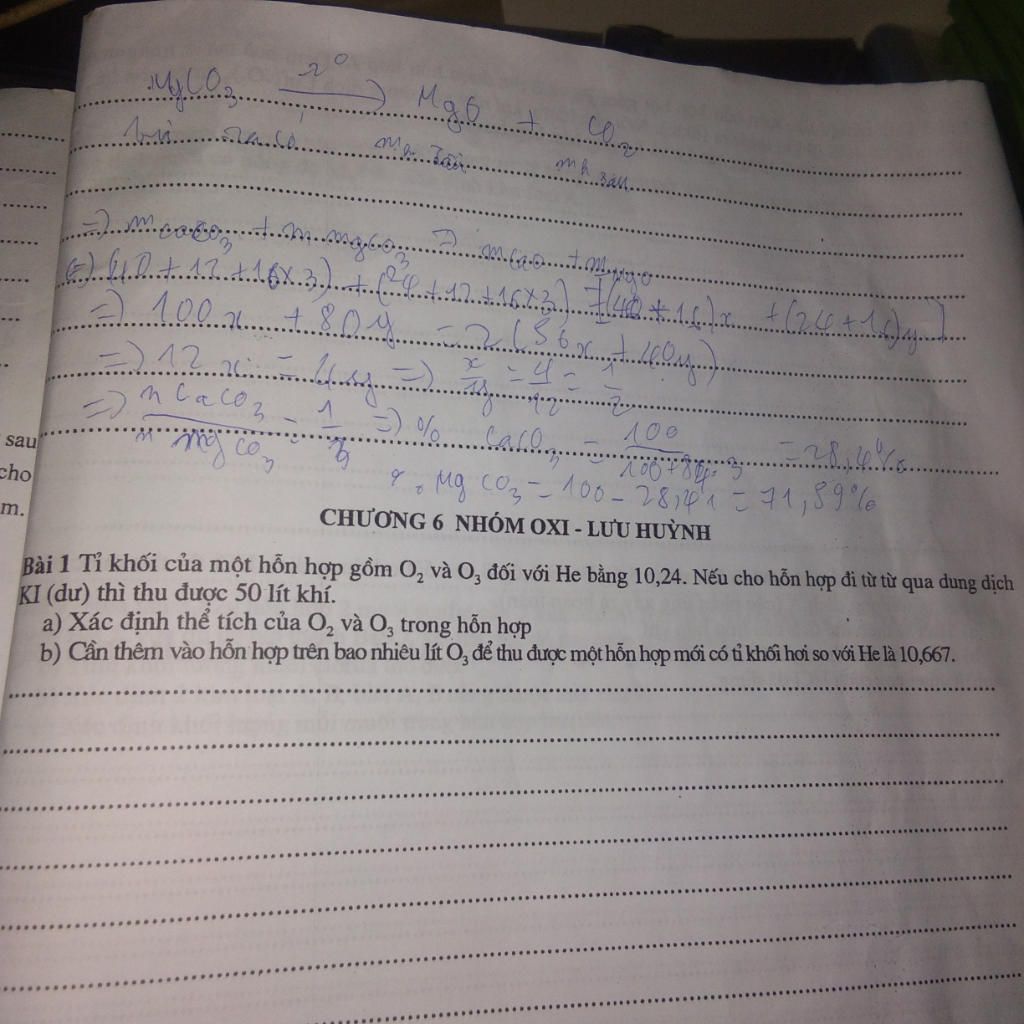 MgCO3 → MgO + CO2
=) m CaCO3 + m MgCO3 = mCaO + mMgO
(=) (40 + 12 + 16x3) + (24 + 12 + 16x3) = [(40 + 16)x + (24 + 16)y]
=) 100x + 84y = 2(56x + 40y)
=) 12x = 4y =) x/y = 4/12 =
=) nCaCO3/n MgCO3 = 1/3 =) % CaCO3 = 100/ = 28,4%
% MgCO3 = 100 - 28,41 = 71,59%
sau
cho
m.
CHƯƠNG 6 NHÓM OXI - LƯU HUỲNH
Bài 1 Tỉ khối của một hỗn hợp gồm O2 và O3 đối với He bằng 10,24. Nếu cho hỗn hợp đi từ từ qua dung dịch
KI (dư) thì thu được 50 lít khí.
a) Xác định thể tích của O2 và O3 trong hỗn hợp
b) Cần thêm vào hỗn hợp trên bao nhiêu lít O3 để thu được một hỗn hợp mới có tỉ khối hơi so với He là 10,667.